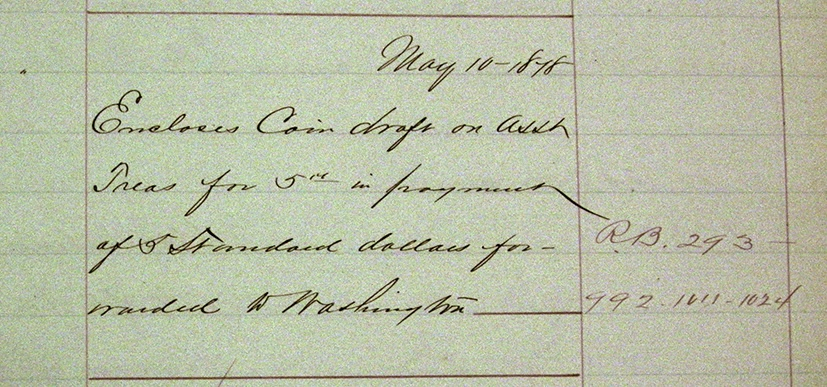 May 10-1878
Encloses Coin draft on Asst
Treas for 5⁰⁰ in payment
of 5 Standard dollars for-
warded to Washington
R.B. 293-
992-1011-1024